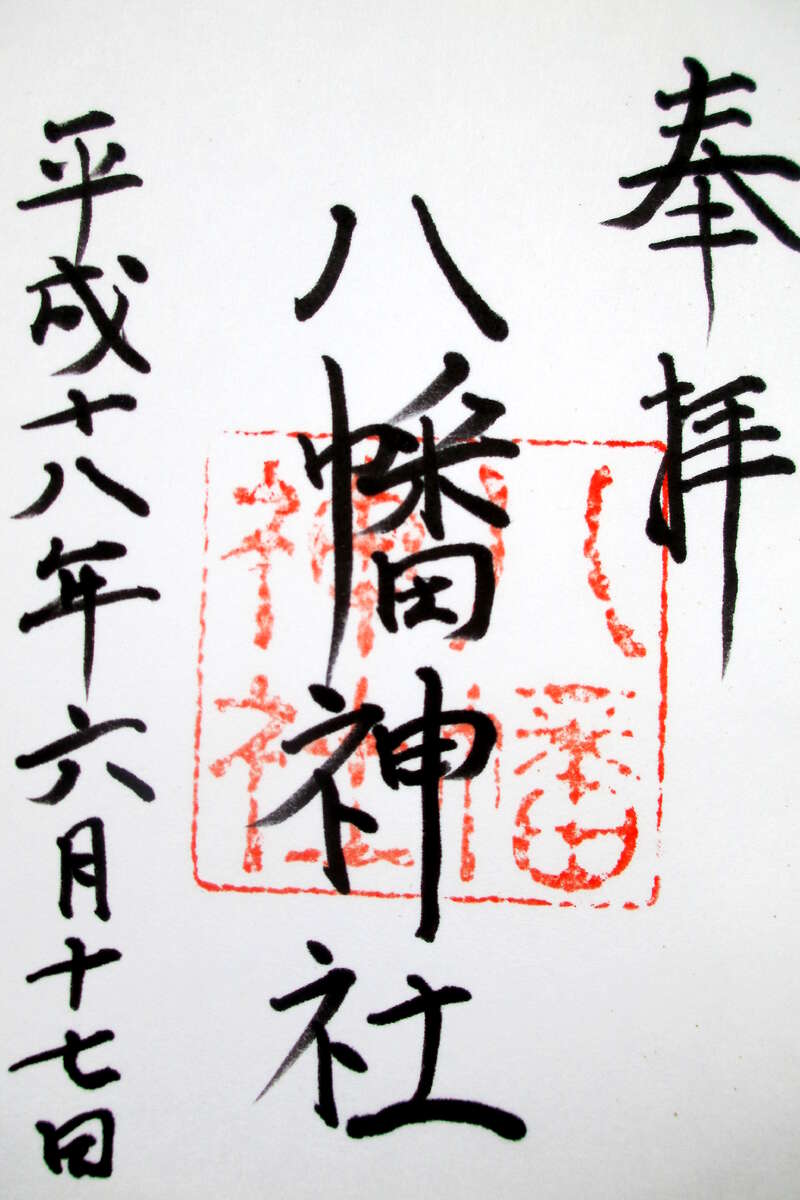 奉拝
八幡神社
平成十八年六月十七日
八幡
神社